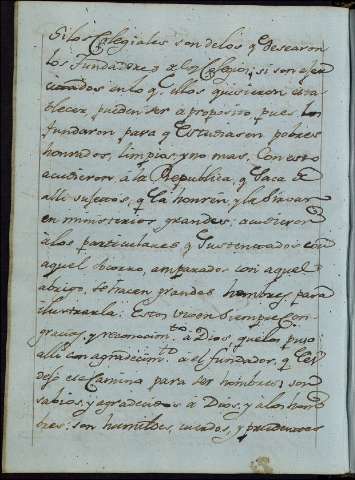 Si los Colegiales son de los q̃ desearon
los fundadores de los Colegios; si son exer
citados en lo q̃ ellos quisieron esta
blecer, pueden ser a proposito, pues los
fundaron para q̃ Estudiasen pobres
honrados, limpios, y no mas. Con esto
acudieron, á la Republica, q̃ saca de
alli sujetos, q̃ la honren, y la sirvan
en ministerios grandes: acudieron
á los particulares q̃ sustentados con
aquel socorro, amparados con aquel
abrigo, se hacen grandes hombres, para
ilustrarla: Estos viven siempre con
gracias, y reconocim.to á Dios, que los puso
alli con agradecim.to á el fundador, q̃ les
dejó ese Camino para ser hombres; son
sabios, y agradecidos á Dios, y á los hom
bres: son humildes, callados, y prudentes